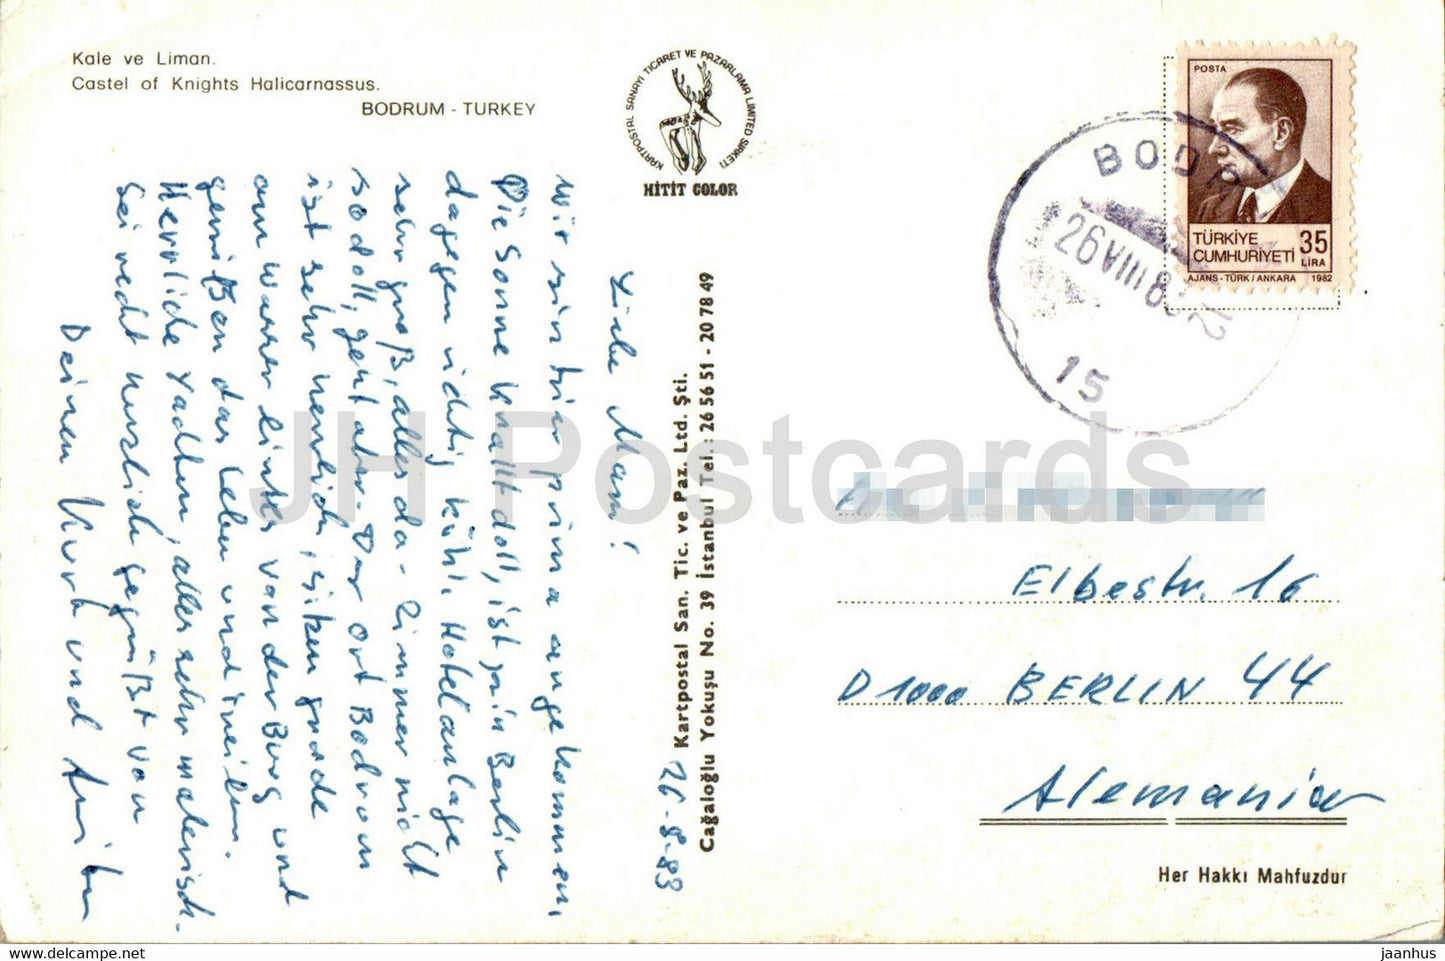 Kale ve Liman.
Castel of Knights Halicarnassus.
BODRUM - TURKEY
KARTPOSTAL SANAYİ TİCARET VE PAZARLAMA LIMITED ŞİRKETİ
HİTİT COLOR
POSTA
TÜRKİYE
CUMHURİYETİ
35
LİRA
AJANS - TÜRK / ANKARA 1982
BOD
26 VIII 8
15
26-8-83
Liebe Mam!
Wir sin hier prima angekommen,
Die Sonne knallt doll, ist ja in Berlin
dagegen richtig kühl. Hotelanlage
sehr groß, alles da - Zimmer nicht
so doll, geht aber - Der Ort Bodrum
ist sehr niedlich, sitzen gerade
am Wasser links von der Burg und
genießen das Leben und
Herrliche Yachten, alles sehr malerisch.
Sei recht herzlich gegrüßt von
Deinen Kurt und
Kartpostal San. Tic. ve Paz. Ltd. Şti.
Cağaloğlu Yokuşu No. 39 İstanbul Tel.: 26 56 51 - 20 78 49
Elbestr. 16
D 1000 BERLIN 44
Alemania
Her Hakkı Mahfuzdur
JH Postcards
www.hippostcard.com
jaanhus